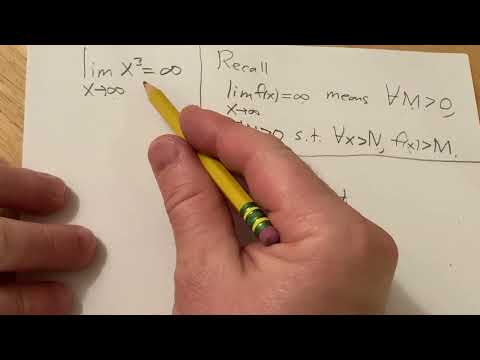 lim x³ = ∞
x→∞
Recall
lim f(x) = ∞ means ∀M>0,
x→∞
N>0 s.t. ∀x>N, f(x)>M.